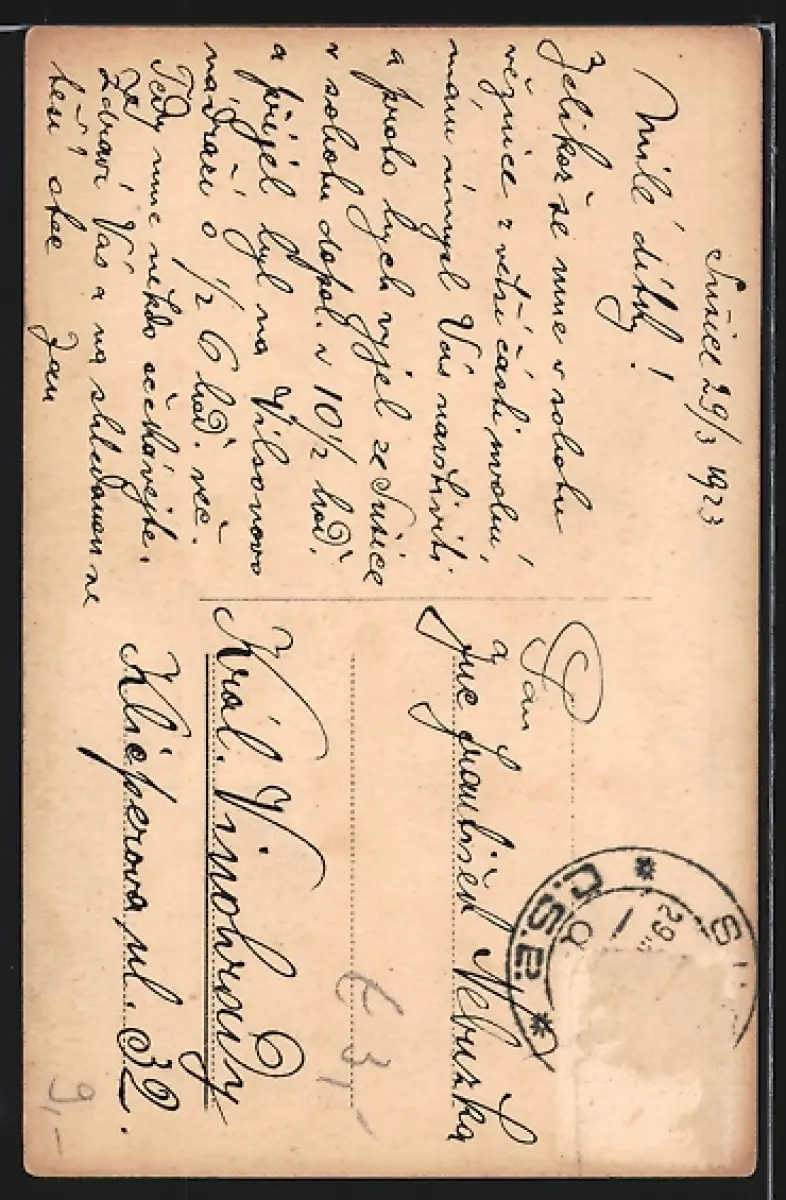 Sušice 29/3 1923
Milé dítky!
Jelikož se mne v sobotu
věznice z vetší části uvolní,
mám úmysl Vás navštíviti
a proto bych vyjel ze Sušice
v sobotu dopol. v 10 1/2 hod.
a přijel byl na Vilsonovo
nadraží o 1/2 6 hod. več.
Tedy mne nekdo očekávejte.
Zdraví Vás a na shledanou se
těší otec Jan
Pan
a
Frantíšek Nebuzka
Král. Vinohrady
Klicperova ul. 32.
Č.S.P.
29
€ 3,-
9,-